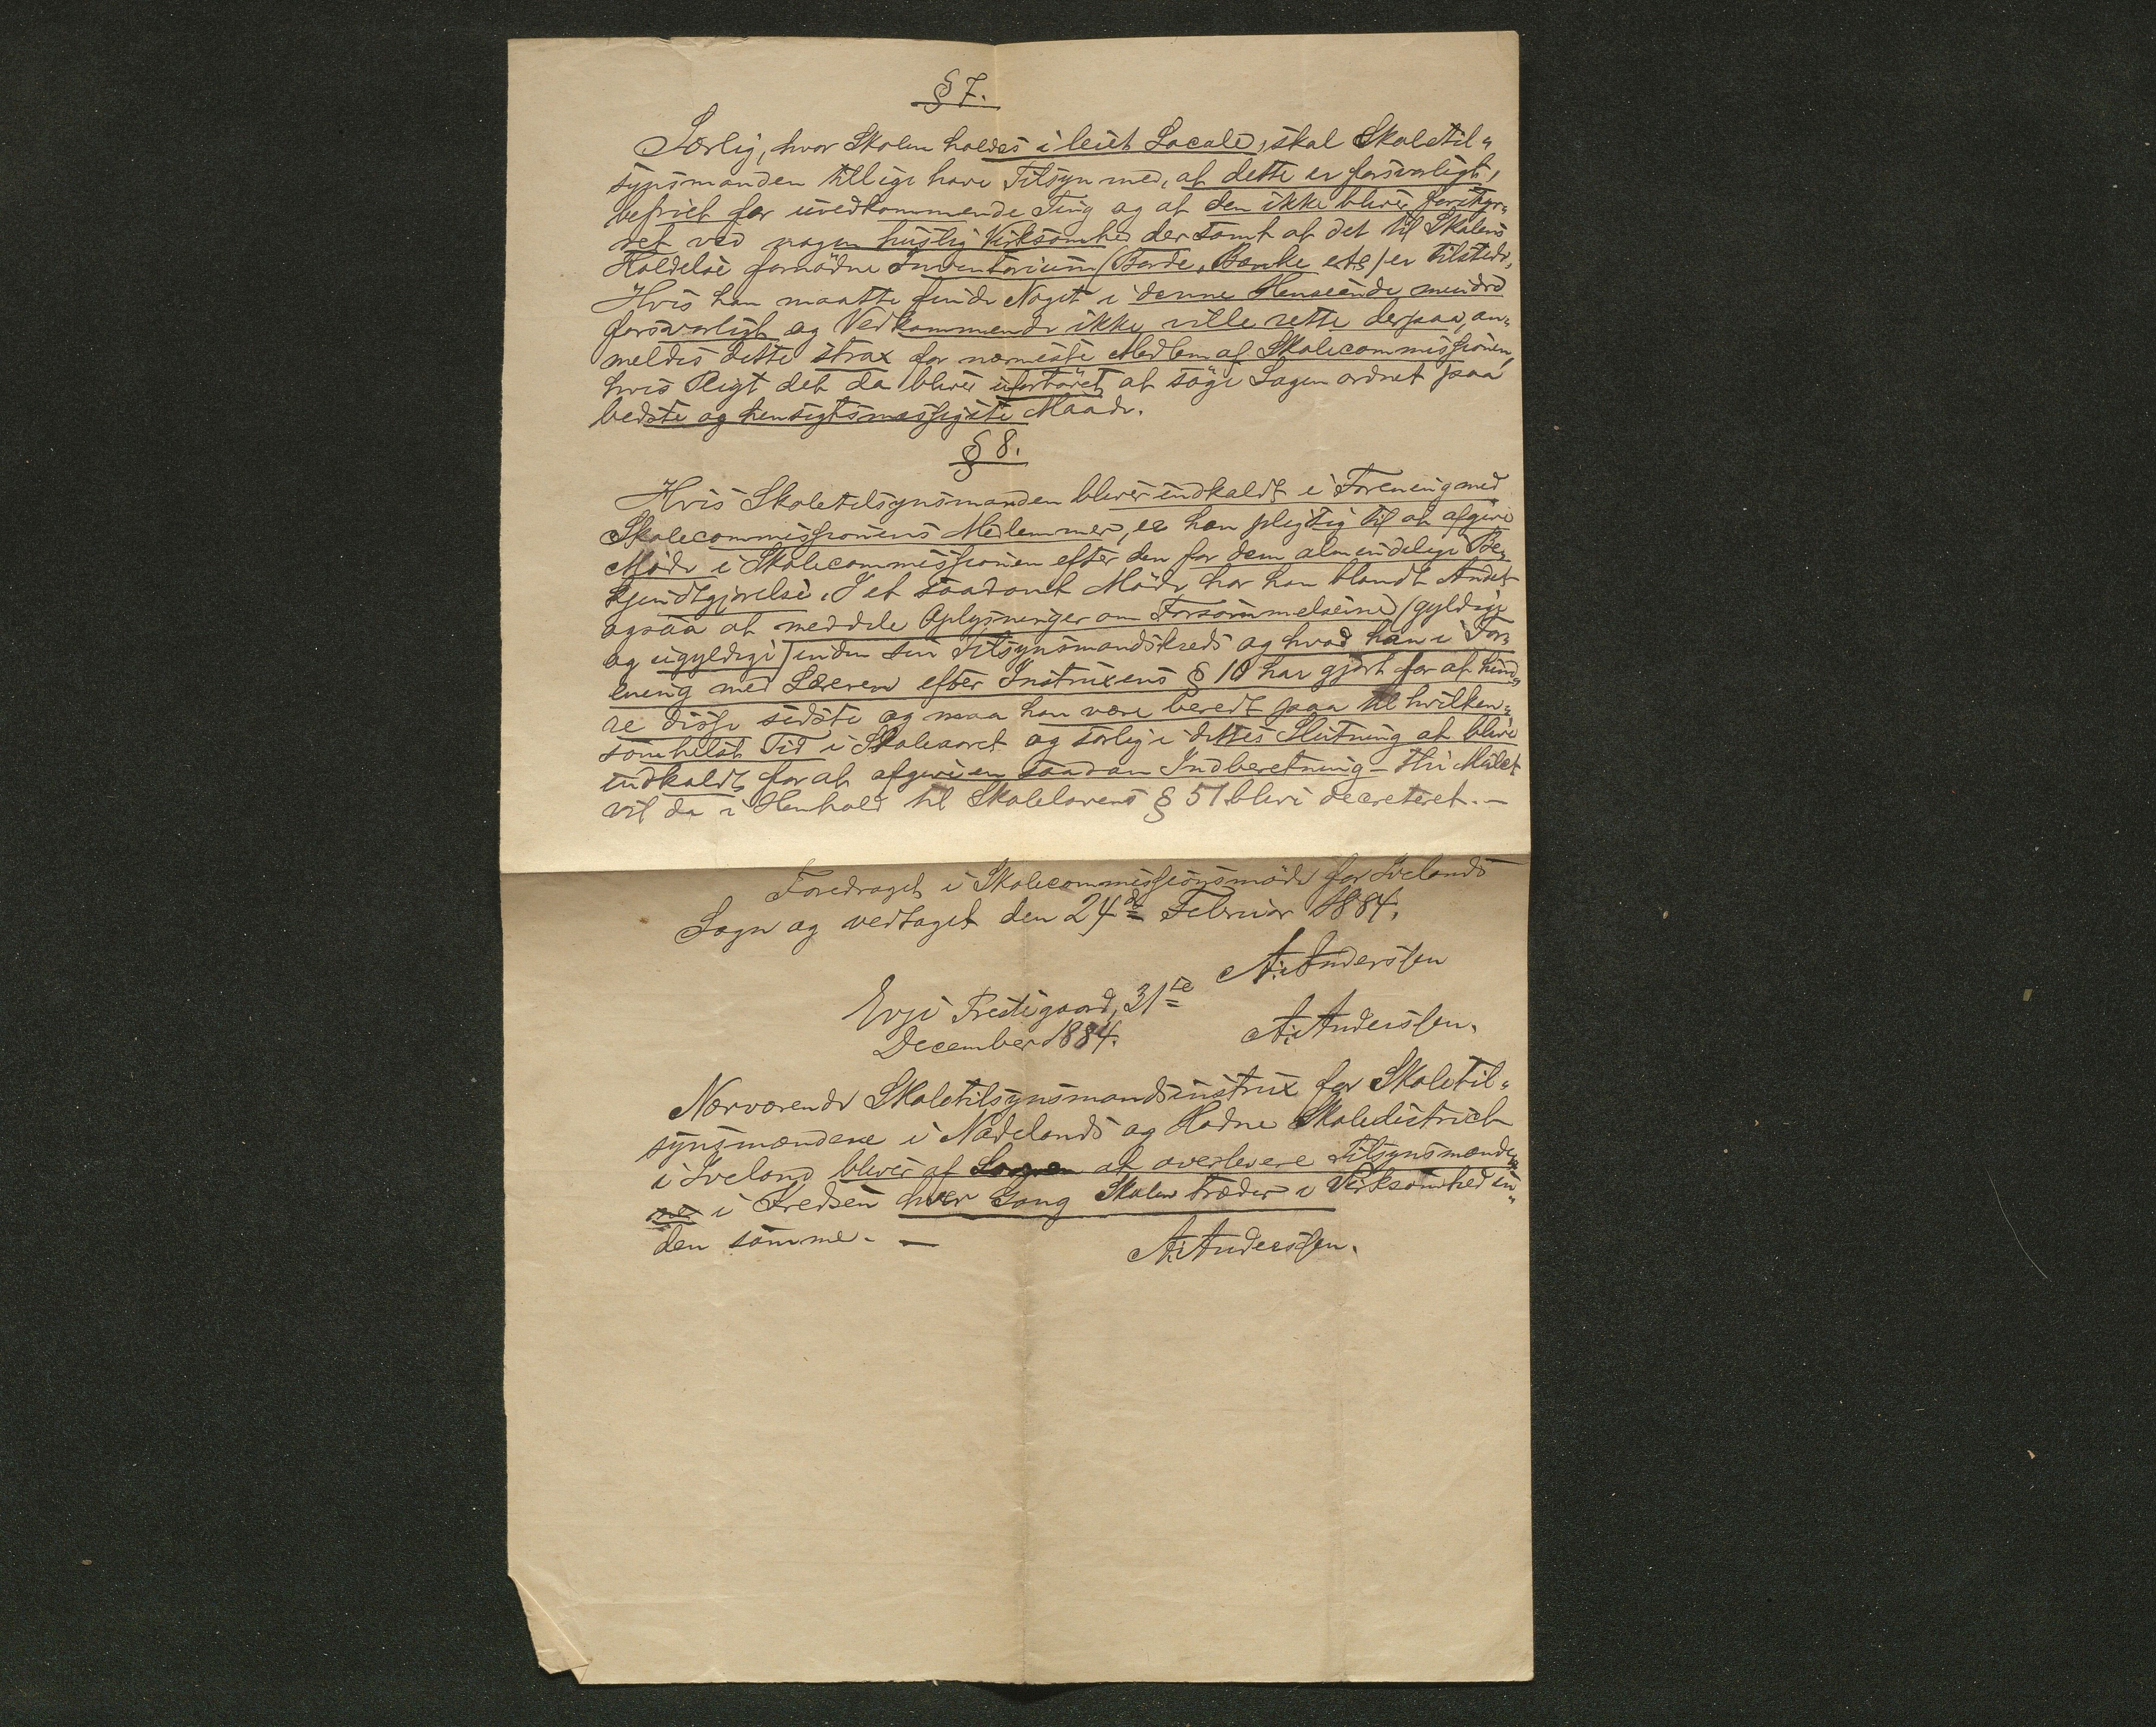 § 7.
Særlig, hvor Skolen holdes i leiet Locale, skal Skoletil„
synsmanden tillige have Tilsyn med, at dette er forsvarligt,
befriet for uvedkommende Ting og at den ikke bliver forstyr„
ret ved nogen huslig Virksomhed der samt at det til Skolens
Holdelse fornødne Inventarium (Borde, Bænke etc) er tilstede,
Hvis han maatte finde Noget i denne Henseende mindre
forsvarligt og Vedkommende ikke ville rette derpaa, an„
meldes dette strax for nærmeste Medlem af Skolecommissionen,
hvis Pligt det da bliver ufortövet at söge Sagen ordnet paa
bedste og hensigtsmæssigste Maade.
§ 8.
Hvis Skoletilsynsmanden bliver indkaldt i Forening med
Skolecommissionens Medlemmer, er han pligtig til at afgive
Möde i Skolecommissionen efter den for dem almindelige Be„
kjendtgjørelse. I et saadant Möde har han blandt Andet
ogsaa at meddele Oplysninger om Forsömmelserne (gyldige
og ugyldige) inden sin Tilsynsmandskreds og hvad han i For„
ening med Læreren efter Instruxens § 10 har gjort for at hind„
re disse sidste og maa han være beredt paa til hvilken„
somhelst Tid i Skoleaaret og særlig i dettes Slutning at blive
indkaldt for at afgive en saadan Indberetning –
vil da i Henhold til Skolelovens § 51 blive decreteret. –
Foredraget i Skolecommissionsmöde for Ivelands
Sogn og vedtaget den 24de Februar 1884.
A. Anderssen
Evje Prestegaard, 31te
December 1884.
A. Anderssen.
Nærværende Skoletilsynsmandsinstrux for Skoletil„
synsmændene i Nædelands og Hodne Skoledistrict
i Iveland bliver af at overlevere Tilsynsmænde„
ne i Kredsen hver Gang Skolen træder i Virksomhed in„
den samme. –
A. Anderssen.